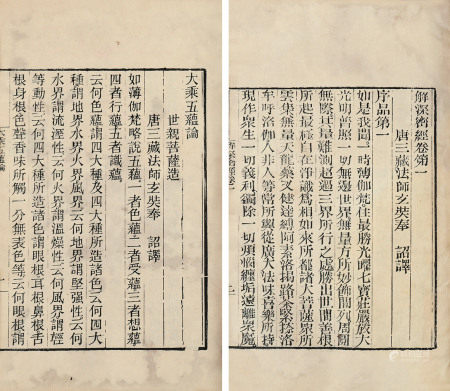 解深密經卷第一
唐三藏法師玄奘奉 詔譯
序品第一
如是我聞一時薄伽梵住最勝光曜七寶莊嚴放大
光明普照一切無邊世界無量方所妙飾間列周圓
無際其量難測超過三界所行之處勝出世間善根
所起最極自在淨識為相如來所都諸大菩薩衆所
雲集無量天龍藥叉健達縛阿素洛揭路荼緊捺洛
牟呼洛伽人非人等常所翼從廣大法味喜樂所持
現作衆生一切義利蠲除一切煩惱纏垢遠離衆魔
大乘五蘊論
世親菩薩造
唐三藏法師玄奘奉 詔譯
如薄伽梵略說五蘊一者色蘊二者受蘊三者想蘊
四者行蘊五者識蘊
云何色蘊謂四大種及四大種所造諸色云何四大
種謂地界水界火界風界云何地界謂堅强性云何
水界謂流溼性云何火界謂溫燥性云何風界謂輕
等動性云何四大種所造諸色謂眼根耳根鼻根舌
根身根色聲香味所觸一分無表色等云何眼根謂